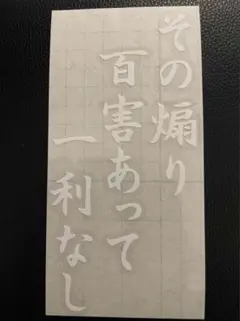 その煽り
百害あって
一利なし